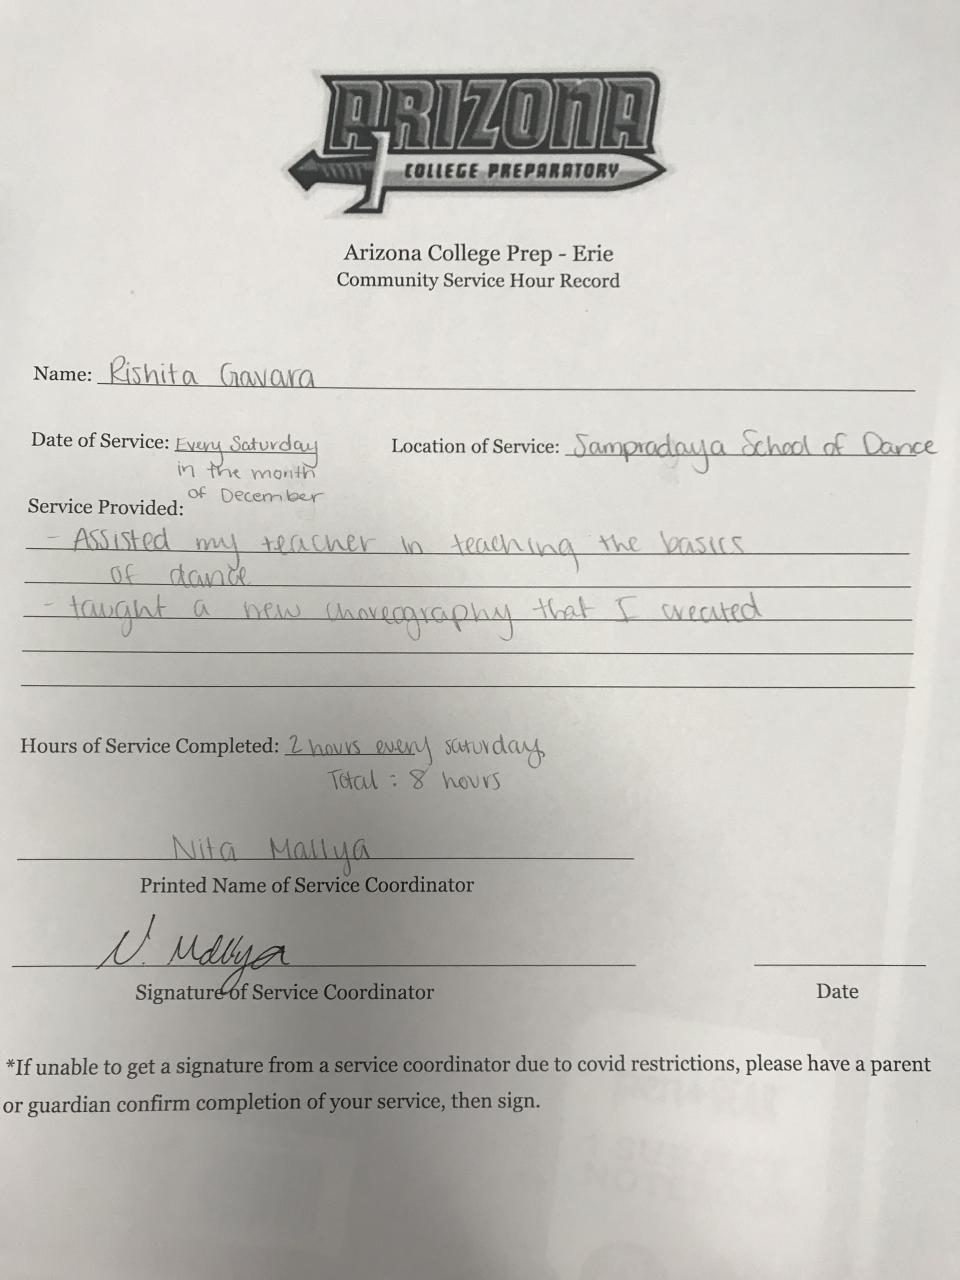 ARIZONA
COLLEGE PREPARATORY
Arizona College Prep - Erie
Community Service Hour Record
Name: Rishita Gavara
Date of Service: Every Saturday
in the month
of December
Location of Service: Sampradaya School of Dance
Service Provided:
- Assisted my teacher in teaching the basics
of dance
- taught a new choreography that I created
Hours of Service Completed: 2 hours every saturday
Total : 8 hours
Nita Mallya
Printed Name of Service Coordinator
N. Mallya
Signature of Service Coordinator
Date
*If unable to get a signature from a service coordinator due to covid restrictions, please have a parent
or guardian confirm completion of your service, then sign.